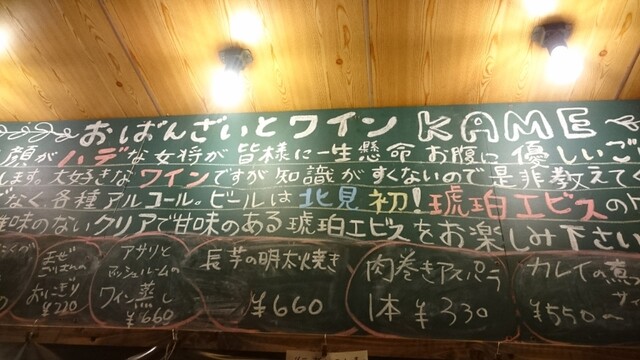 おばんざいとワイン KAME
顔がハデな女将が皆様に一生懸命お腹に優しいご
します。大好きなワインですが知識がすくないので是非教えてく
なく、各種アルコール。ビールは北見初!琥珀エビスの
味のないクリアで甘味のある琥珀エビスをお楽しみ下さい
おにぎり
¥220
アサリと
マッシュルームの
ワイン蒸し
¥660
長芋の明太焼き
¥660
肉巻きアスパラ
1本 ¥330
カレイの
¥550~